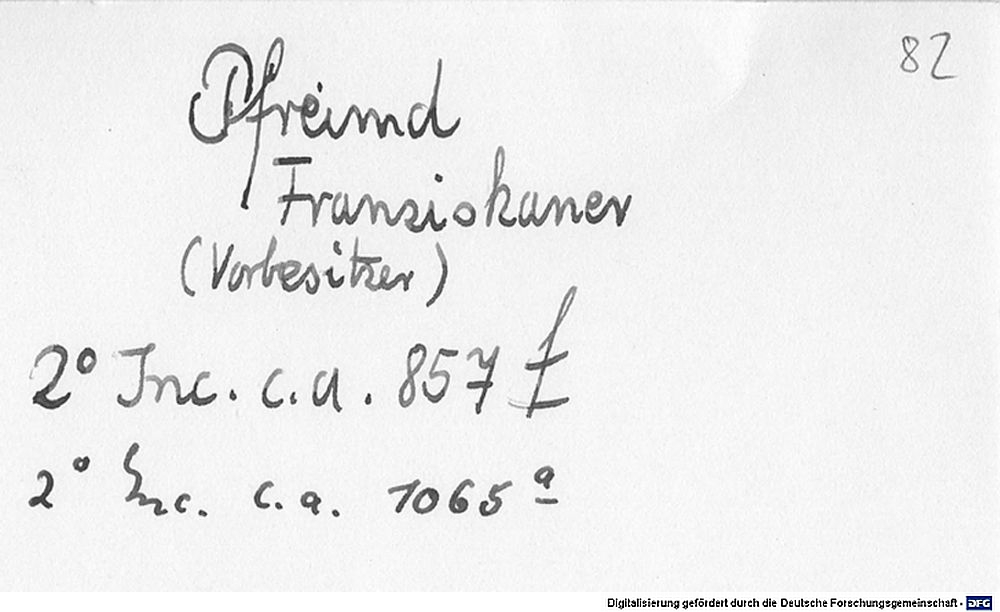 82
Pfreimd
Franziskaner
(Vorbesitzer)
2° Inc. c.a. 857 f
2° Inc. c.a. 1065 a
Digitalisierung gefördert durch die Deutsche Forschungsgemeinschaft - DFG